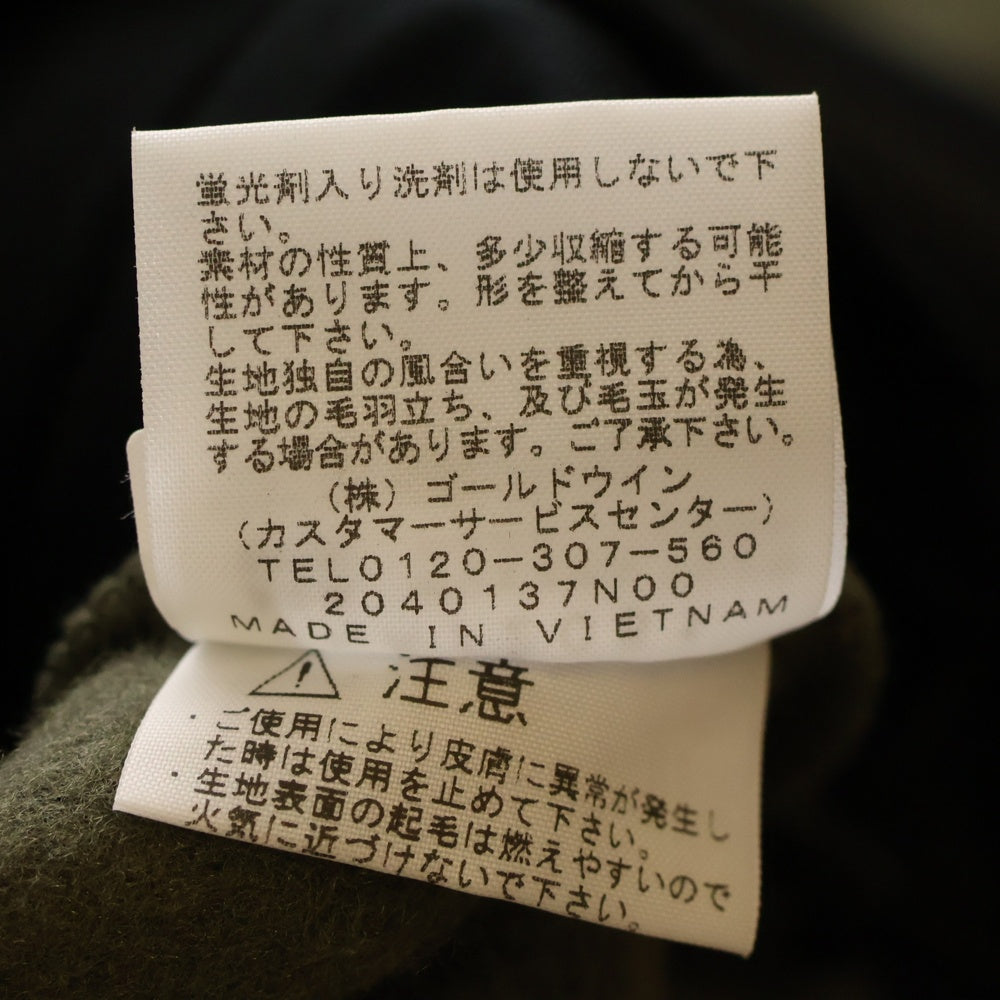 蛍光剤入り洗剤は使用しないで下
さい。
素材の性質上、多少収縮する可能
性があります。形を整えてから干
して下さい。
生地独自の風合いを重視する為、
生地の毛羽立ち、及び毛玉が発生
する場合があります。ご了承下さい。
(株)ゴールドウイン
(カスタマーサービスセンター)
TEL0120-307-560
2040137N00
MADE IN VIETNAM
注意
・ご使用により皮膚に異常が発生し
た時は使用を止めて下さい。
・生地表面の起毛は燃えやすいので
火気に近づけないで下さい。